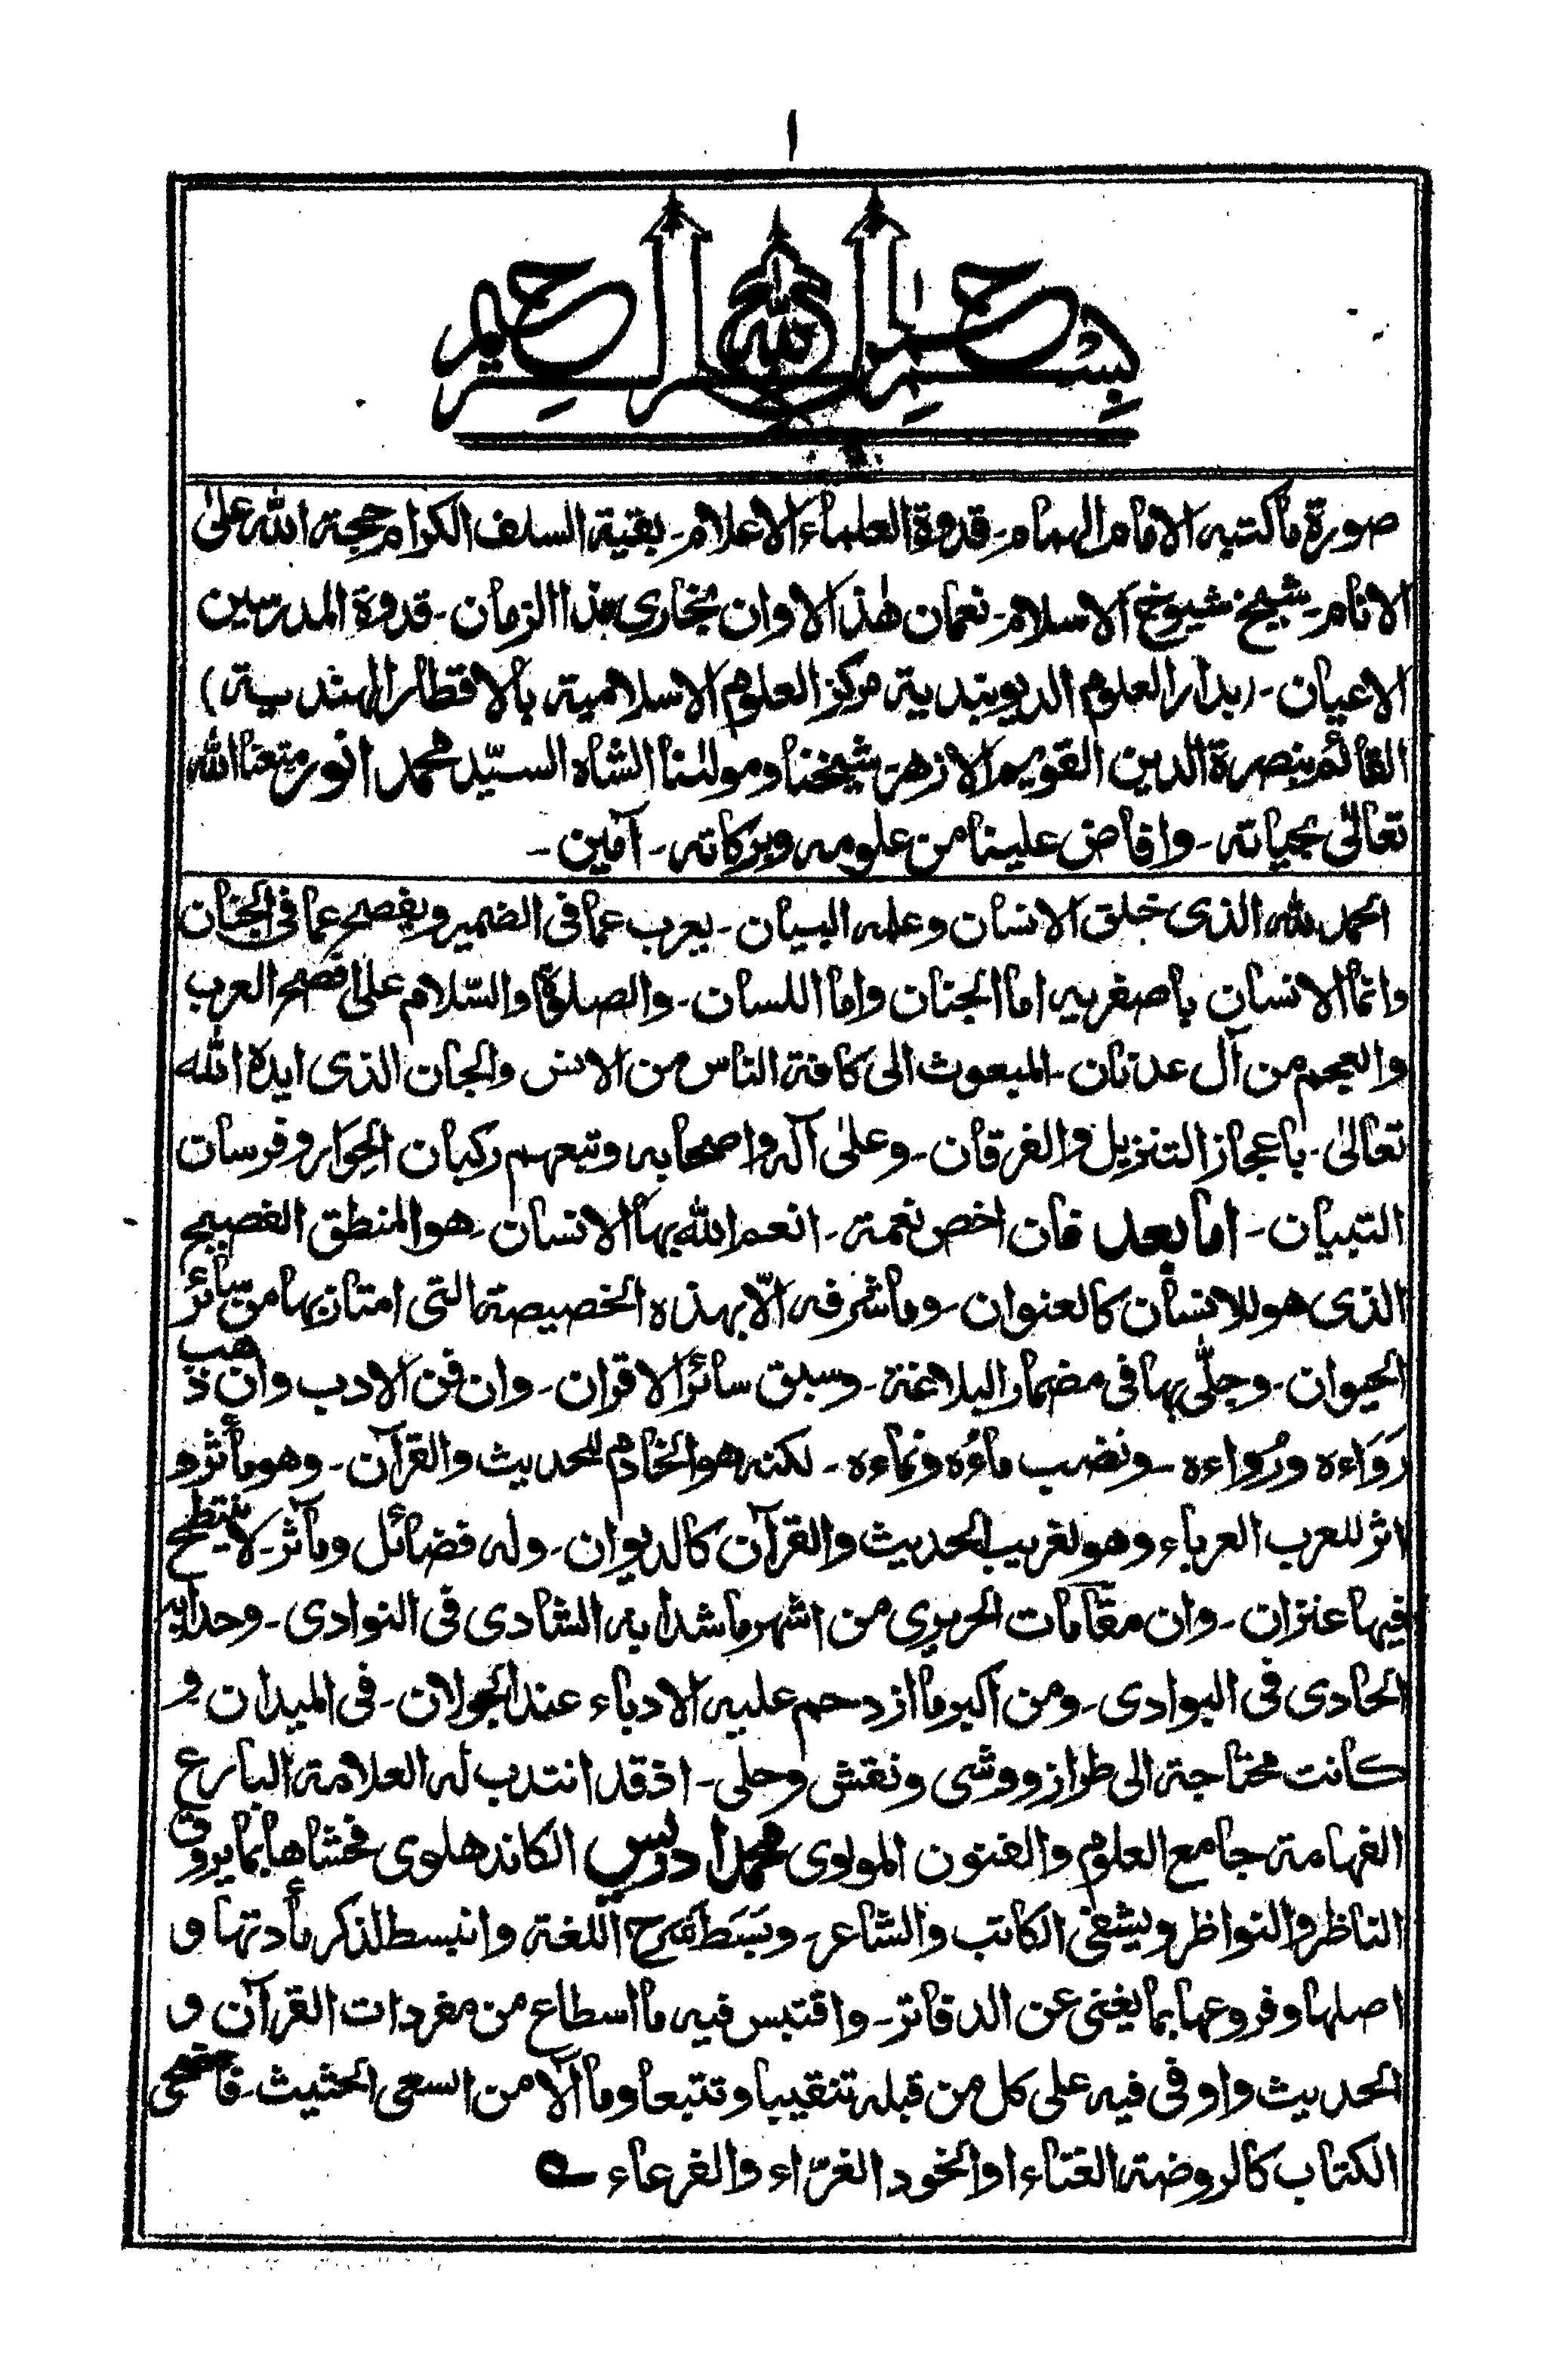 ١
بسم الله الرحمن الرحيم
صورة ما كتبه الامام الهمام ـ قدوة العلماء الاعلام ـ بقية السلف الكرام حجة الله على
الانام ـ شيخ شيوخ الاسلام ـ نعمان هذا الاوان بخاري هذا الزمان ـ قدوة المدرسين
الاعيان ـ (بدار العلوم الديوبندية مركز العلوم الاسلامية بالاقطار الهندية)
القائم بنصرة الدين القويم الازهر شيخنا ومولٰنا الشاه السيّد محمد انور متعنا الله
تعالىٰ بحياته ـ وافاض علينا من علومه وبركاته ـ آمين ـ
الحمد لله الذى خلق الانسان وعلمه البيان ـ يعرب عما فى الضمير ويفصح عما فى الجنان
وانما الانسان باصغريه اما الجنان واما اللسان ـ والصلوة والسّلام على افصح العرب
والعجم من آل عدنان ـ المبعوث الى كافة الناس من الانس والجان الذى ايده الله
تعالىٰ ـ باعجاز التنزيل والفرقان ـ وعلىٰ آله واصحابه وتبعهم ركبان الحِوَار وفرسان
التبيان ـ اما بعد فان اخص نعمة ـ انعم الله بها الانسان ـ هو المنطق الفصيح
الذى هو للانسان كالعنوان ـ وما شرفه الّا بهذه الخصيصة التى امتاز بها من سائر
الحيوان ـ وجلّى بها فى مضمار البلاغة ـ وسبق سائر الاقران ـ وان فن الادب وان ذهب
رَوَاءه ورُواءه ـ ونضب ماؤه ونماءه ـ لكنه هو الخادم للحديث والقرآن ـ وهو مأثر و
اثر للعرب العرباء وهو لغريب الحديث والقرآن كالديوان ـ وله فضائل ومآثر ـ لا ينتطح
فيها عنزان ـ وان مقامات الحريري من اشهر ما شدا به الشادى فى النوادى ـ وحدا به
الحادى فى البوادى ـ ومن اكبر ما ازدحم عليه الادباء عند الجولان ـ فى الميدان و
كانت محتاجة الى طراز ووشى ونقش وحلى ـ اذ قد انتدب له العلامة البارع
الفهامة جامع العلوم والفنون المولوى محمد ادريس الكاندهلوى فحشاها بما يروق
الناظر والنواظر ويشفى الكاتب والشاعر ـ وبَسَط شرح اللغة وانبسط لذكر مأدتها و
اصلها وفروعها بما يغنى عن الدفاتر ـ واقتبس فيه ما اسطاع من مفردات القرآن و
الحديث واوفى فيه على كل من قبله تنقيبا وتتبعا وما آلا من السعى الحثيث ـ فاضحى
الكتاب كالروضة الغناء او الخود الغرّاء والفرعاء ـ